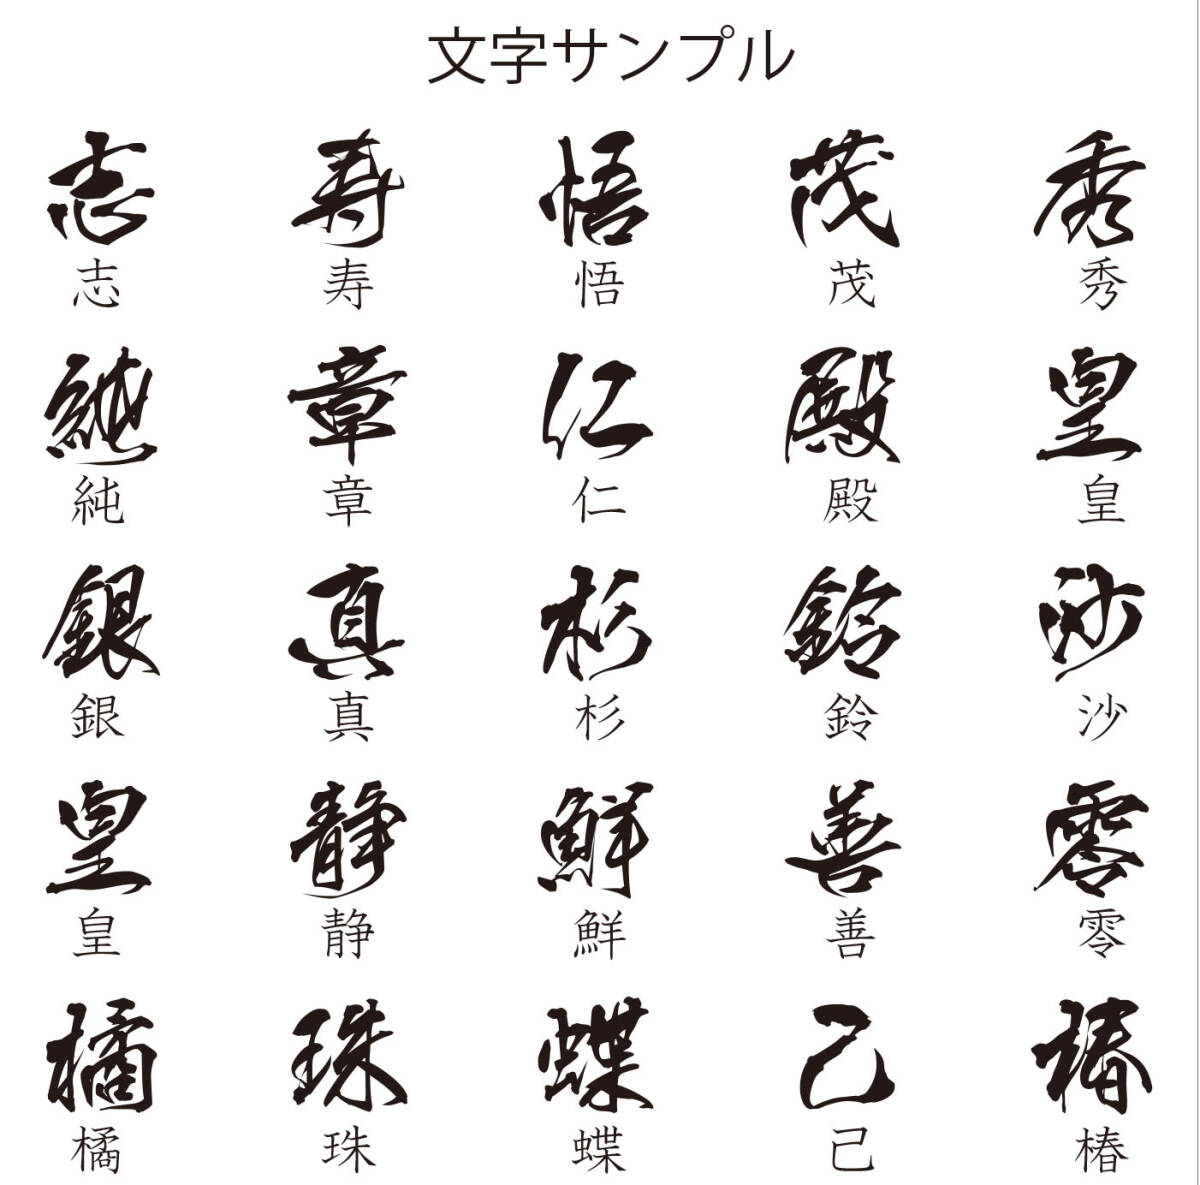 文字サンプル
志 寿 悟 茂 秀
志 寿 悟 茂 秀
純 章 仁 殿 皇
純 章 仁 殿 皇
銀 真 杉 鈴 沙
銀 真 杉 鈴 沙
皇 静 鮮 善 零
皇 静 鮮 善 零
橘 珠 蝶 己 椿
橘 珠 蝶 己 椿